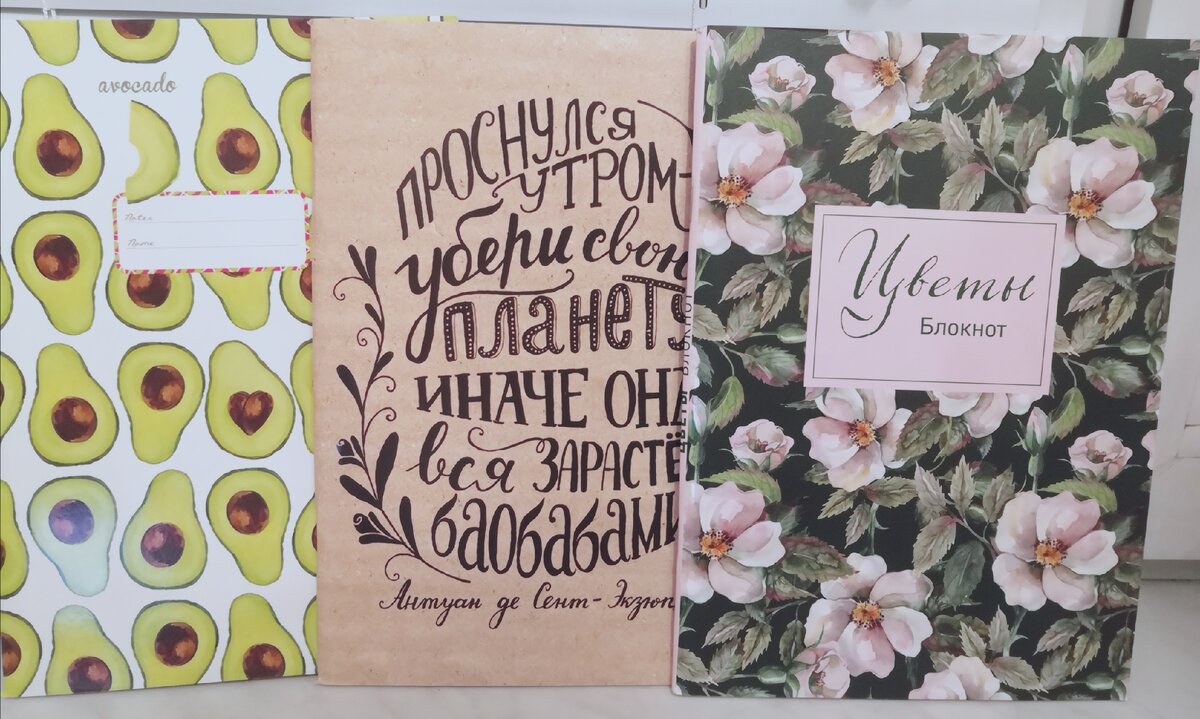 avocado
Notes
Name
ПРОСНУЛСЯ
УТРОМ-
убери свою
планету
ИНАЧЕ ОНА
вся ЗАРАСТЁ
баобабами
Антуан де Сент-Экзюп
Цветы
Блокнот